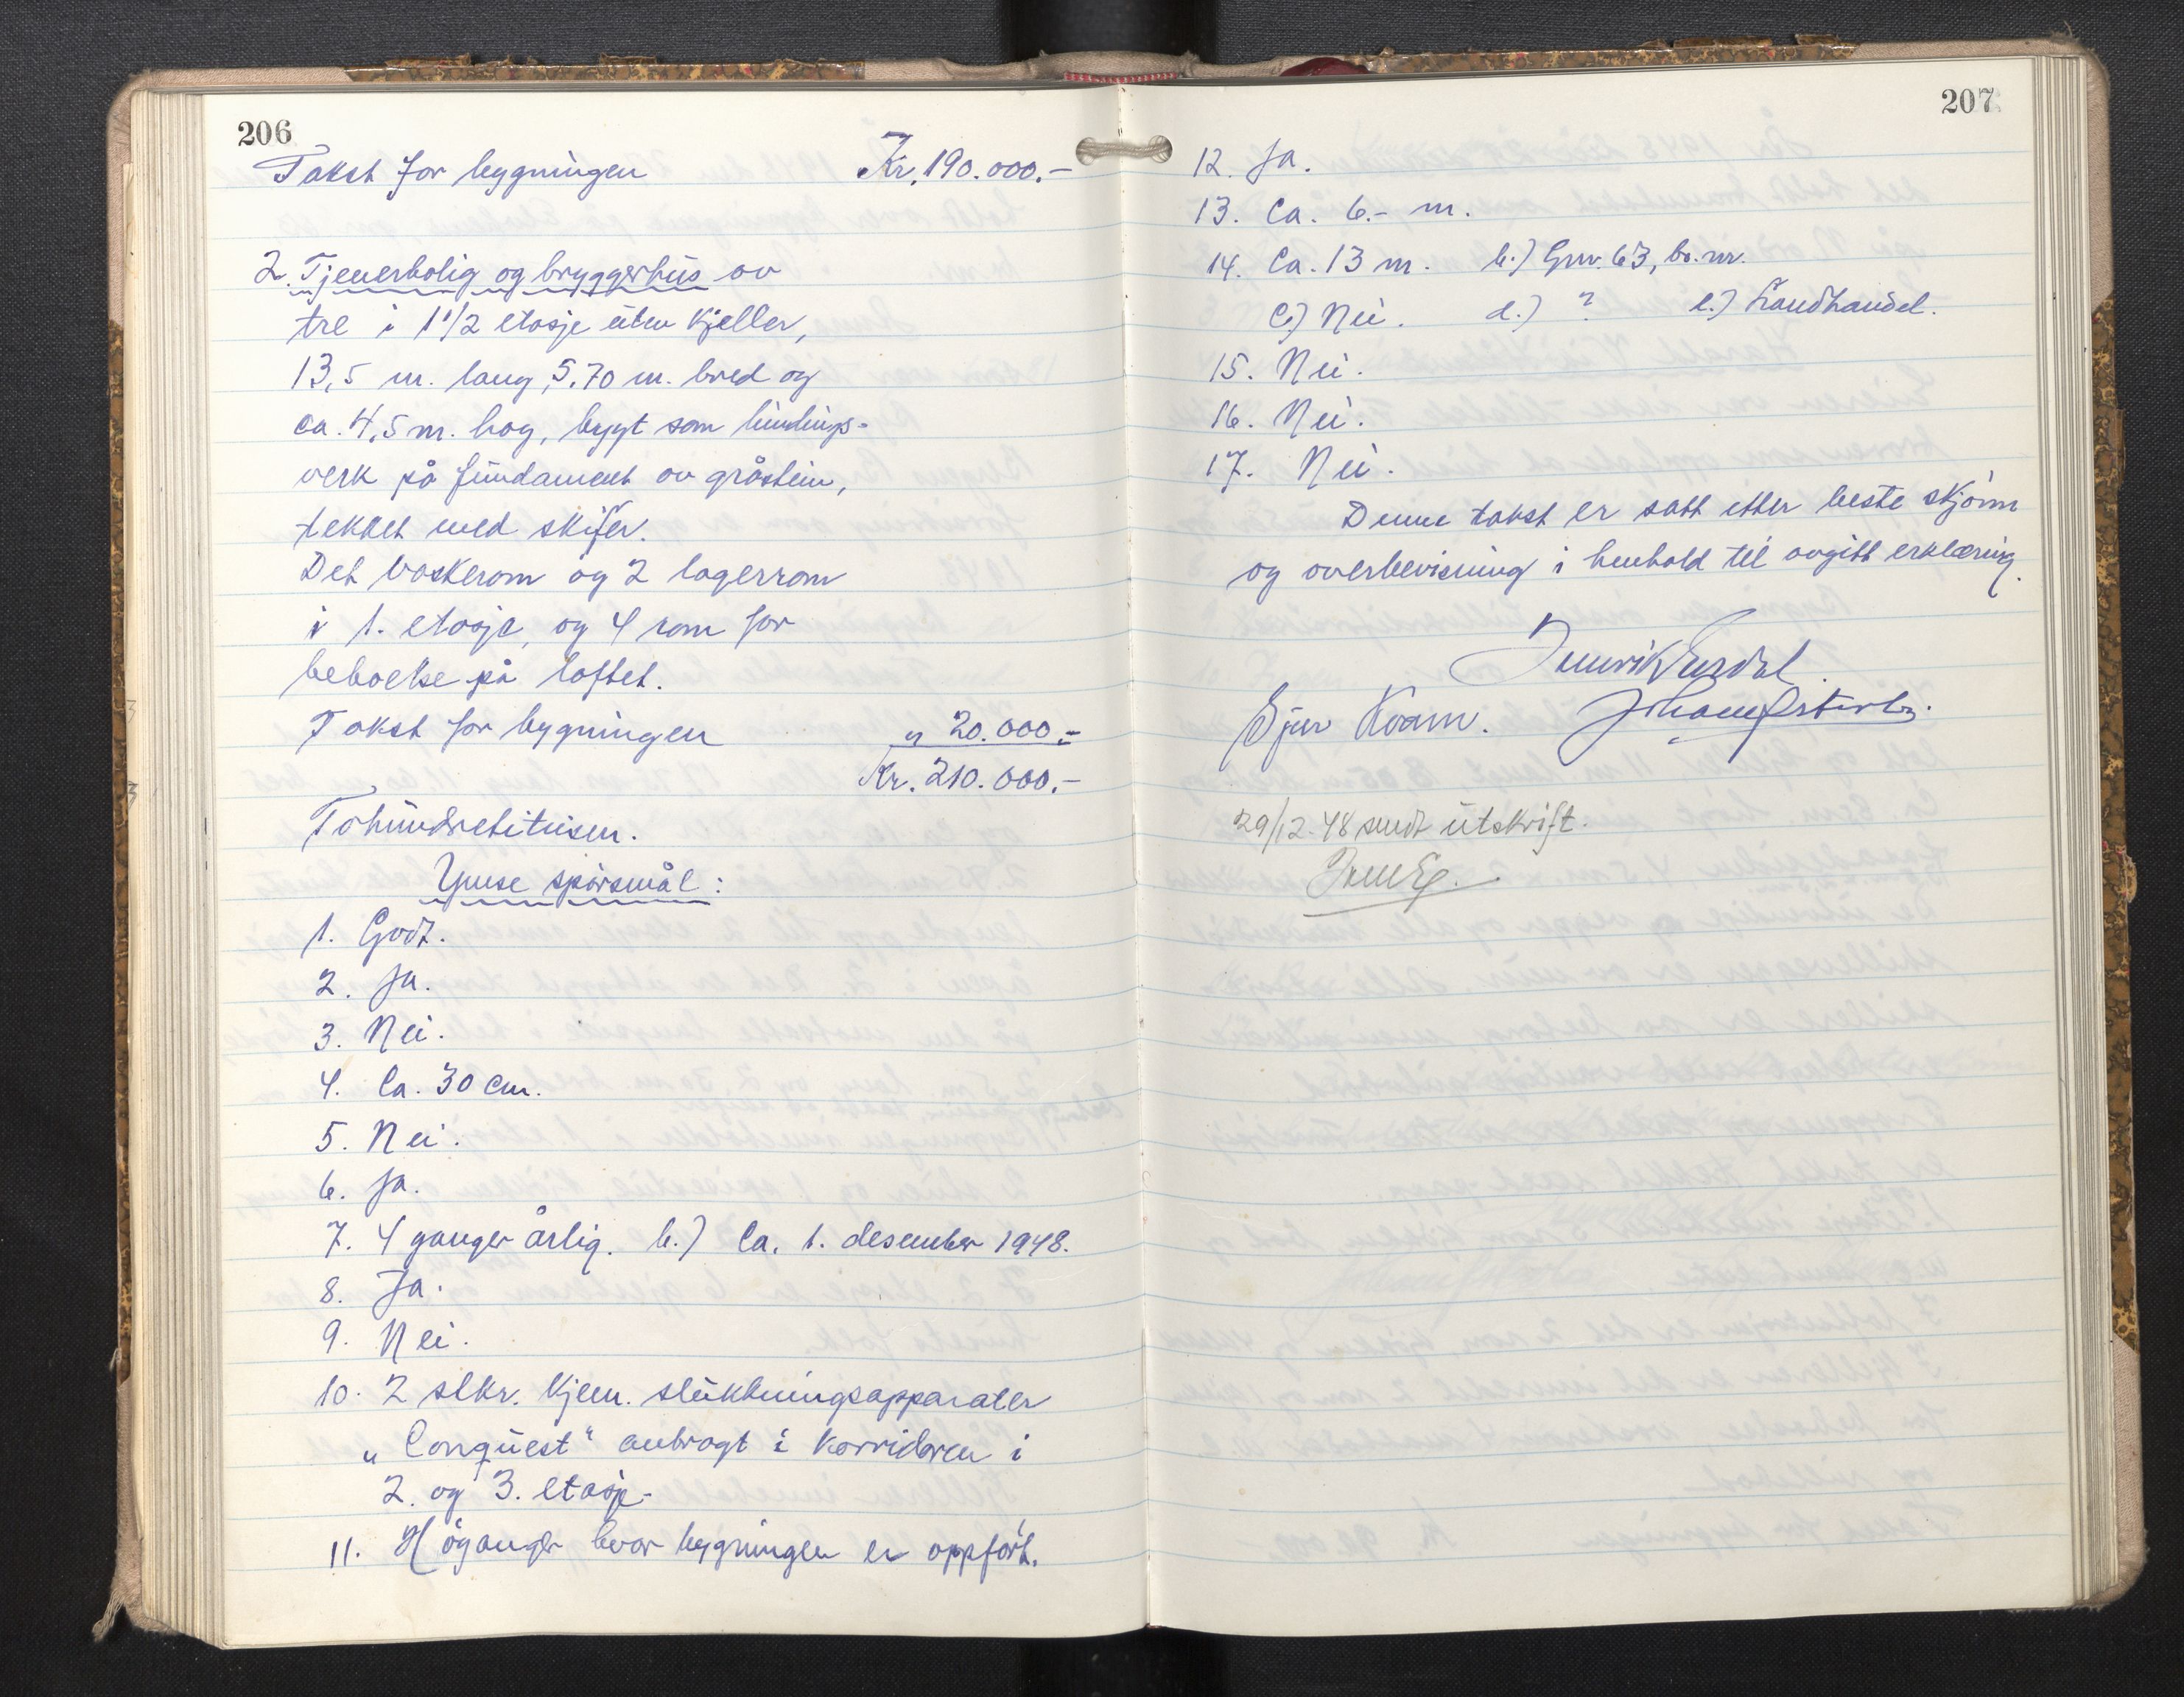 206
Takst for bygningen Kr. 190.000.-
2. Tjenerbolig og bryggerhus av
tre i 1 1/2 etasje uten kjeller,
13,5 m. lang, 5.70 m. bred og
ca. 4,5 m. høg, bygt som bindings-
verk på fundament av gråstein,
tekket med skifer.
Det vaskerom og 2 lagerrom
i 1. etasje, og 4 rom for
beboelse på loftet.
Takst for bygningen " 20.000.-
Kr. 210.000.-
Tohundretitusen.
Ymse spørsmål:
1. Godt.
2. Ja.
3. Nei.
4. Ca. 30 cm.
5. Nei.
6. Ja.
7. 4 ganger årlig. b.) Ca. 1. desember 1948.
8. Ja.
9. Nei.
10. 2 stkr. kjem. slukkningsapparater
„Conquest" anbragt i korridoren i
2. og 3. etasje.
11. Höyanger hvor bygningen er oppført.
207
12. Ja.
13. Ca. 6.- m.
14. Ca. 13 m. b.) Gnr. 63, br. nr.
c.) Nei. d.) ? e.) Landhandel.
15. Nei.
16. Nei.
17. Nei.
Denne takst er satt etter beste skjönn
og overbevisning i henhold til avgitt erklæring.
Sjur Kvam.
29/12-48 sendt utskrift.